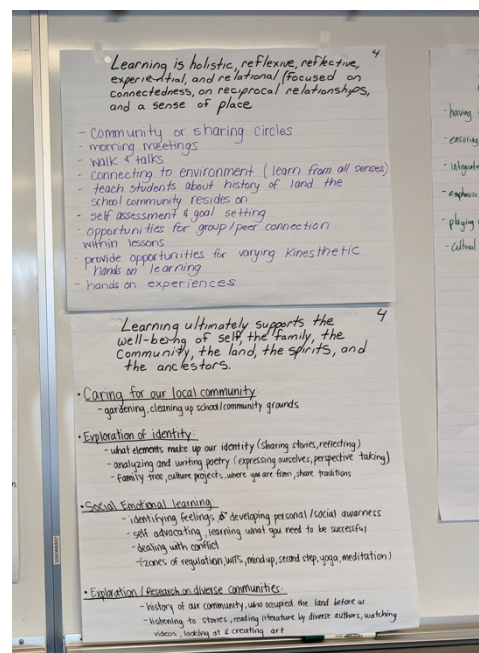 4
Learning is holistic, reflexive, reflective,
experiential, and relational (focused on
connectedness, on reciprocal relationships,
and a sense of place
- Community or sharing circles
- morning meetings
- walk & talks
- connecting to environment (learn from all senses)
- teach students about history of land the
school community resides on
- self assessment & goal setting
- opportunities for group/peer connection
within lessons
- provide opportunities for varying kinesthetic
hands on learning
- hands on experiences
4
Learning ultimately supports the
well-being of self, the family, the
community, the land, the spirits, and
the ancestors.
• Caring for our local community:
- gardening, cleaning up school/community grounds
• Exploration of identity:
- what elements make up our identity (sharing stories, reflecting)
- analyzing and writing poetry (expressing ourselves, perspective taking)
- family tree, culture projects, where you are from, share traditions
• Social Emotional learning:
- identifying feelings & developing personal/social awarness
- self advocating, learning what you need to be successful
- dealing with conflict
- (zones of regulation, WITS, mind up, second step, yoga, meditation)
• Exploration/Research on diverse communities:
- history of our community, who occupied the land before us
- listening to stories, reading literature by diverse authors, watching
videos, looking at & creating art
- having
- ensuring
- integrate
- emphasize
- playing
- cultural